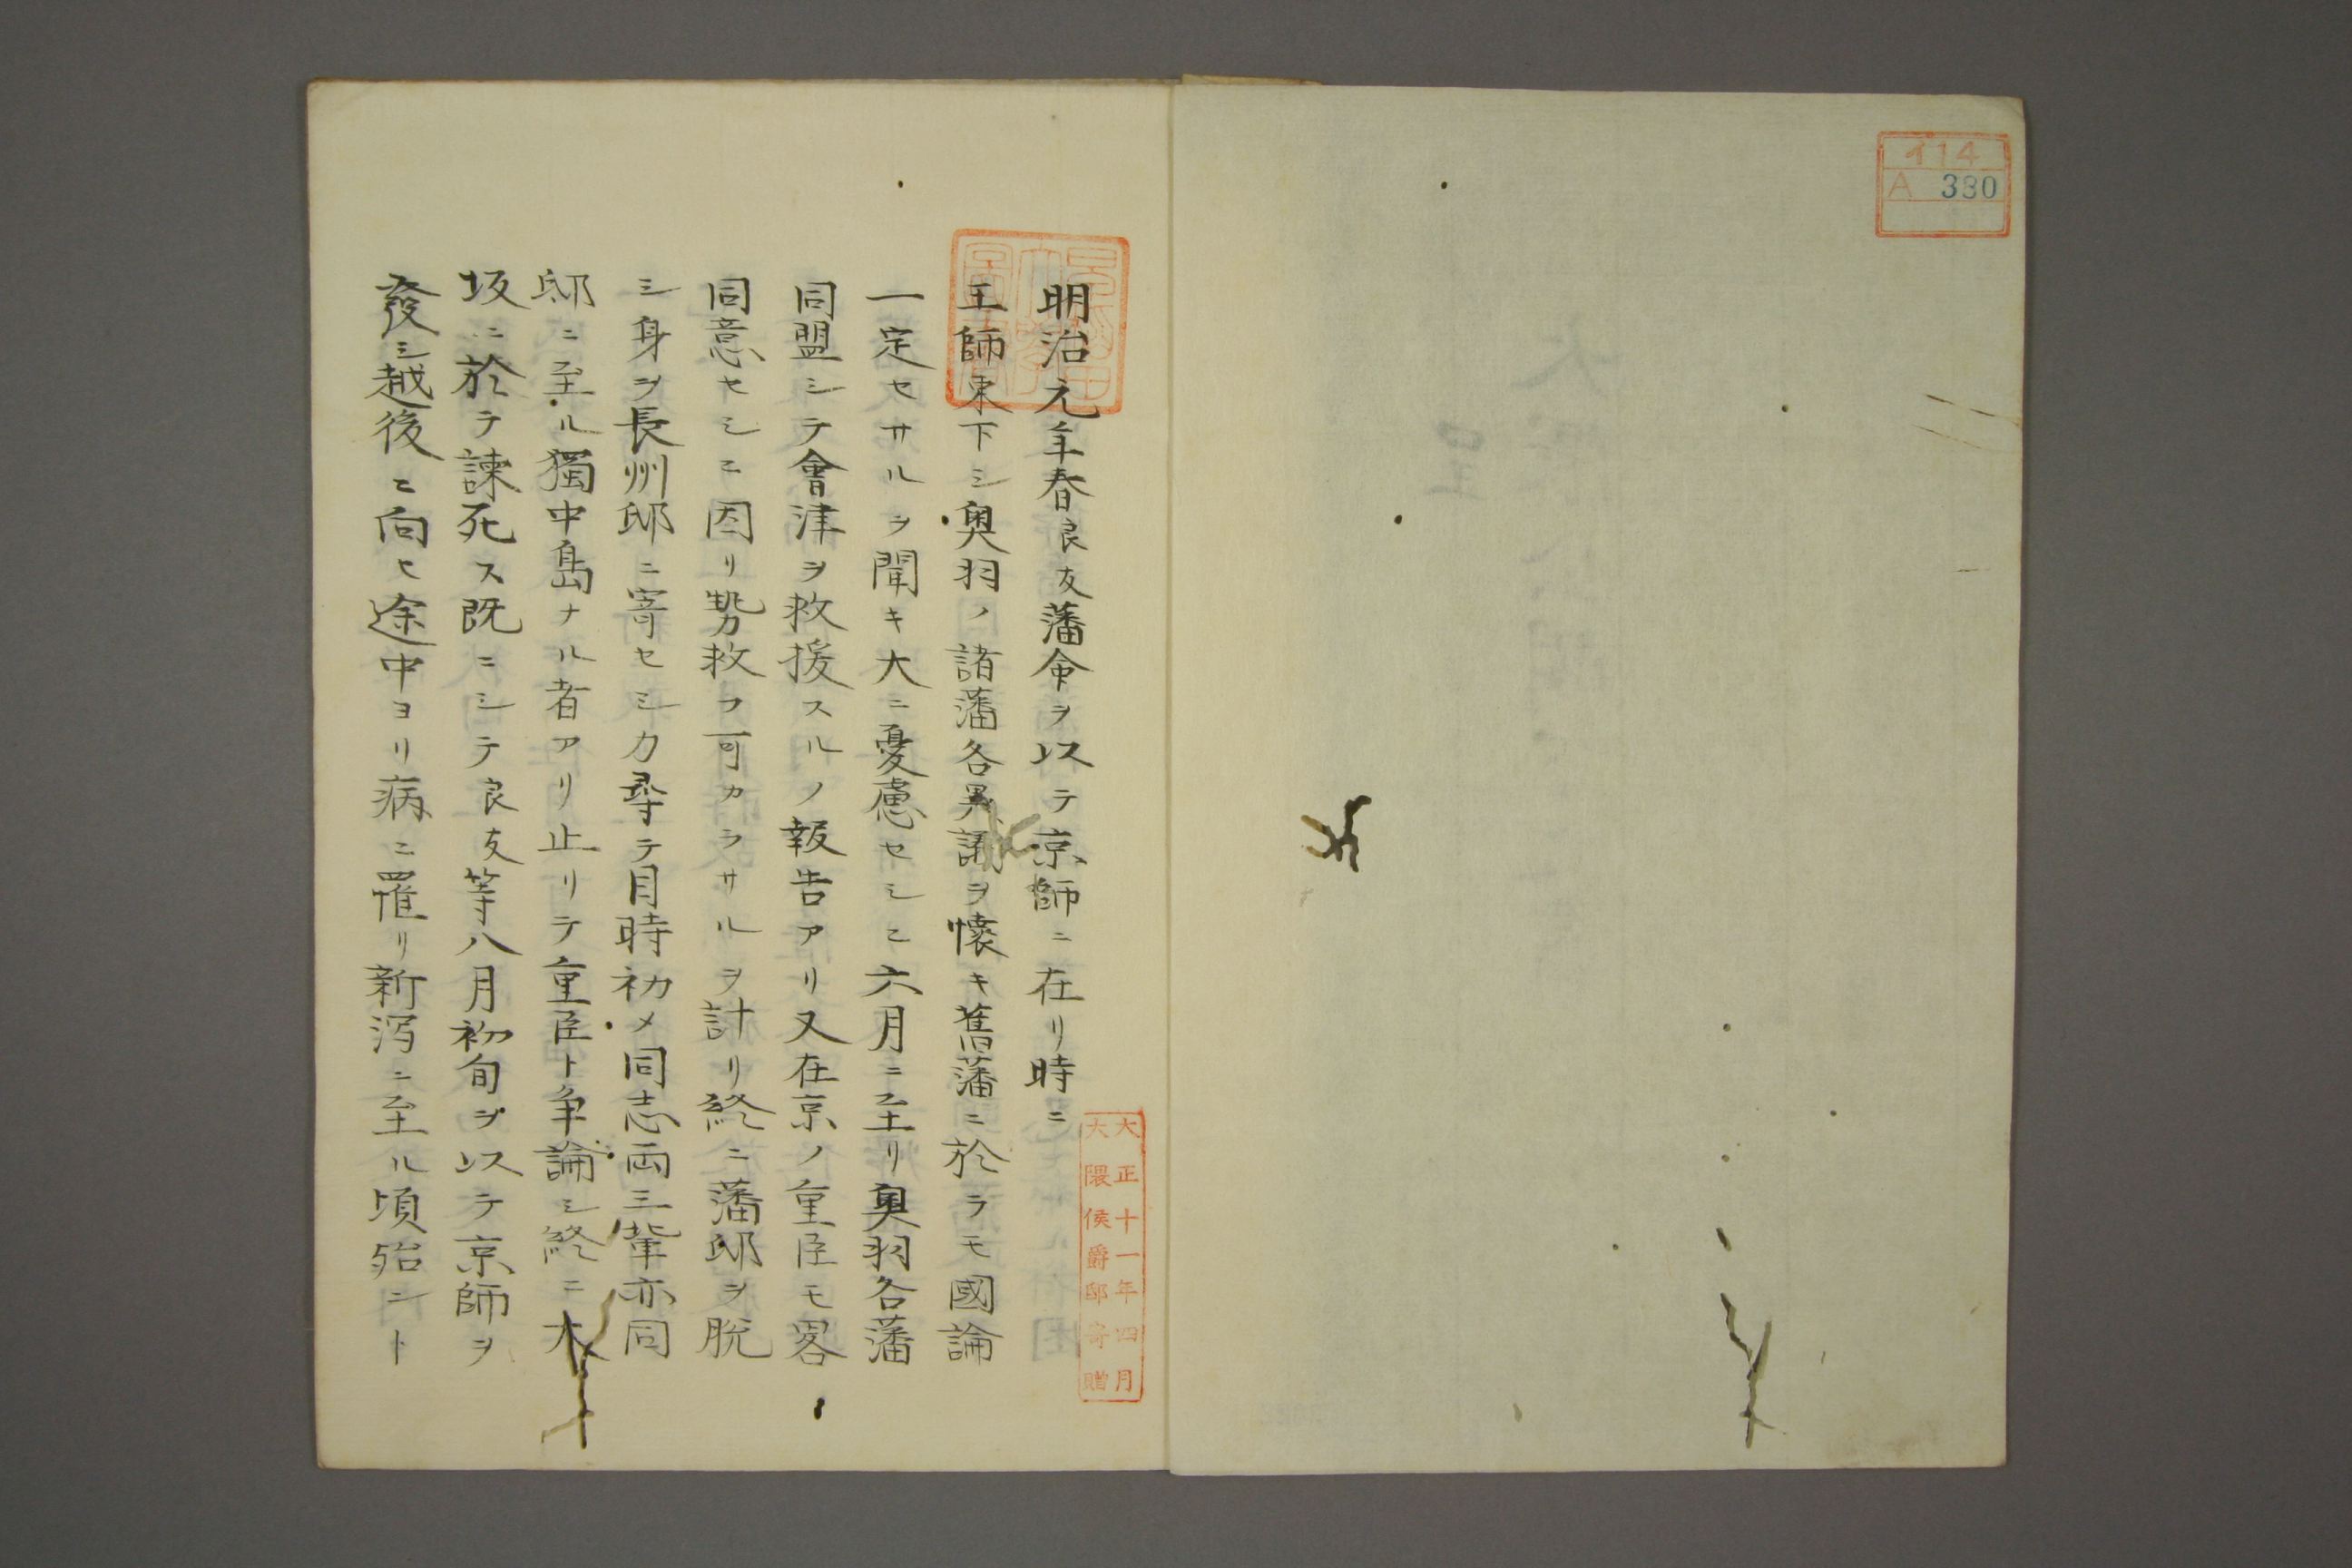 イ14
A 380
明治元年春良友藩命ヲ以テ京師ニ在リ時ニ
王師東下シ奥羽ノ諸藩各異論ヲ懐キ舊藩ニ於ラモ國論
一定セサルヲ聞キ大ニ憂慮セシニ六月ニ至リ奥羽各藩
同盟シテ會津ヲ救援スルノ報告アリ又在京ノ重臣モ畧
同意セシニ因リ勢救フ可カラサルヲ計リ終ニ藩邸ヲ脱
シ身ヲ長州邸ニ寄セシカ尋テ目時初メ同志両三輩亦同
邸ニ至ル獨中島ナル者アリ止リテ重臣ト争論シ終ニ大
坂ニ於テ諫死ス既ニシテ良友等八月初旬ヲ以テ京師ヲ
發シ越後ニ向ヒ途中ヨリ病ニ罹リ新潟ニ至ル頃殆ント
大正十一年四月
大隈侯爵邸寄贈